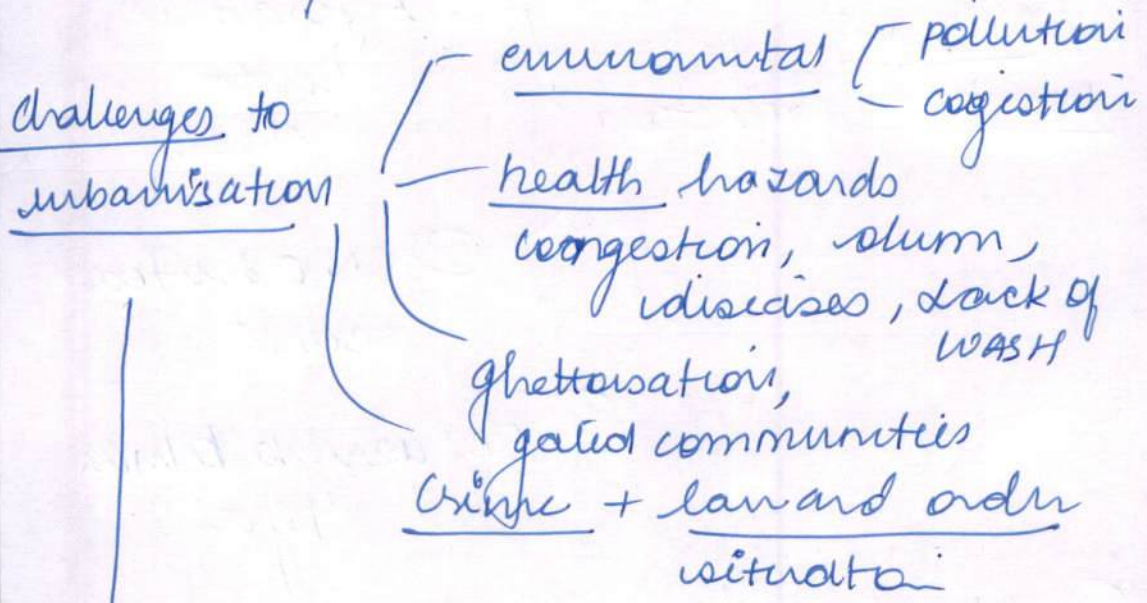 challenges to
urbanisation
environmental
pollution
cogestion
health hazards
congestion, slum,
diseases, Lack of
WASH
ghettoisation,
gated communities
Crime + law and order
situation